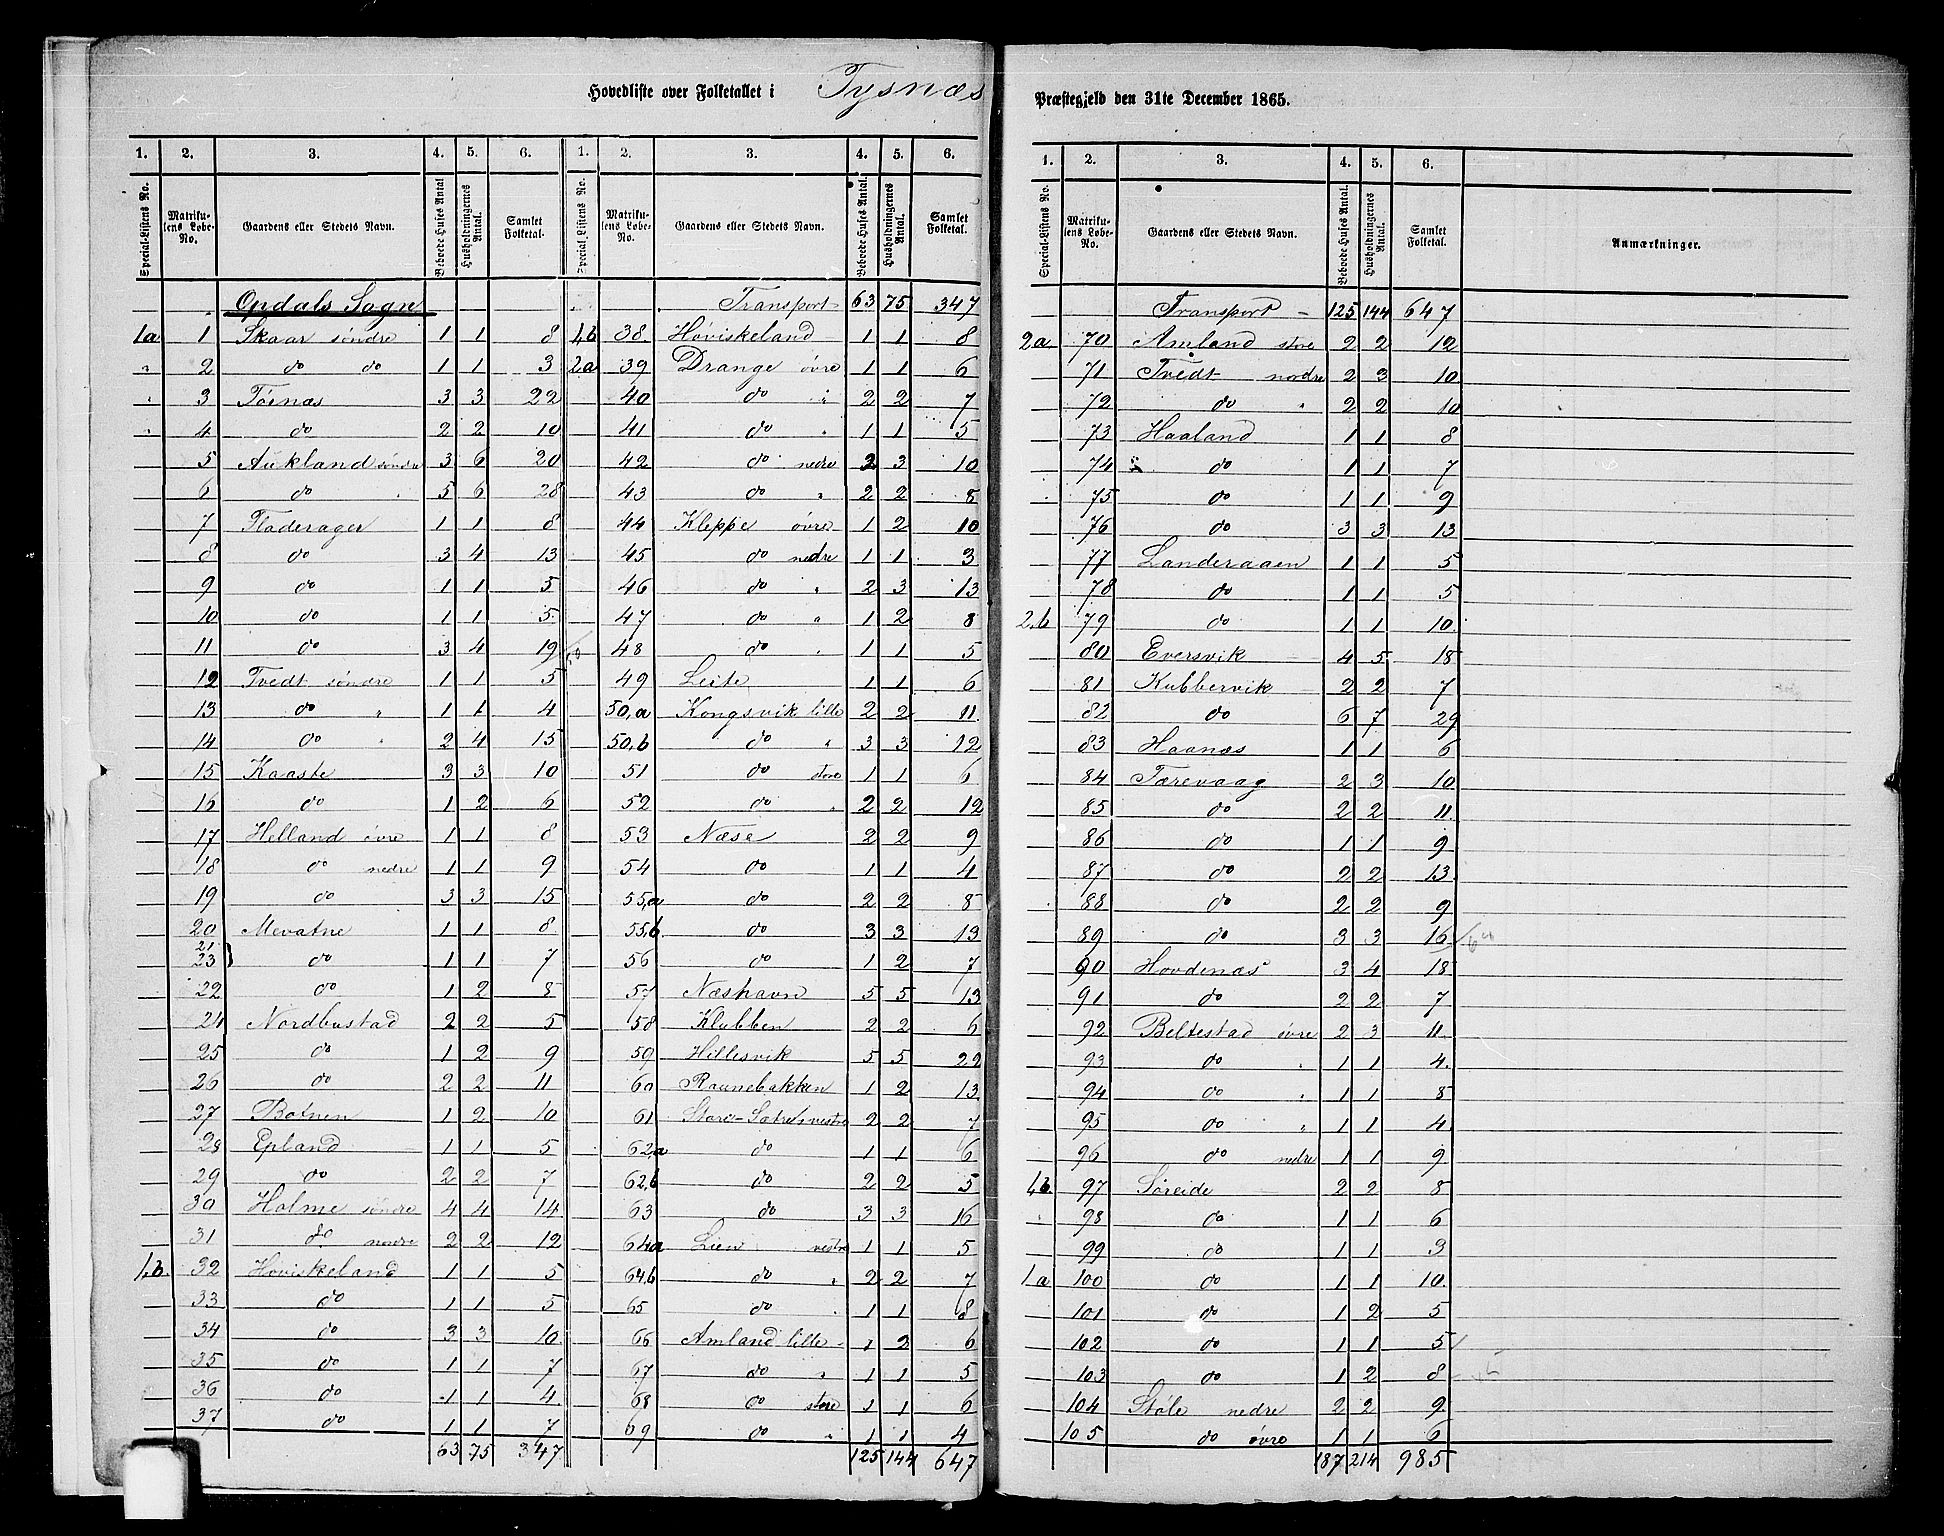 Hovedliste over Folketallet i Tysnæs
1. 2. 3. 4. 5. 6. 1. 2. 3. 4. 5. 6.
Special-Listens No. Matrikulens Løbe-No. Gaardens eller Stedets Navn. Beboede Huses Antal Husholdningernes Antal. Samlet Folketal. Special-Listens No. Matrikulens Løbe-No. Gaardens eller Stedets Navn. Beboede Huses Antal. Husholdningernes Antal. Samlet Folketal.
Opdals Sogn
1a 1 Skaar søndre 1 1 8
" 2 do do 1 1 3
" 3 Töenæs 3 3 22
" 4 do 2 2 10
5 Aukland søndre 3 6 20
6 do " 5 6 28
7 Fladerager 1 1 8
8 do 3 4 13
9 do 1 1 5
10 do 1 1 5
11 do 3 4 19
12 Tvedt søndre 1 1 5
13 do " 1 1 4
14 do " 2 4 15
15 Kaaste 3 3 10
16 do 1 2 6
17 Helland øvre 1 1 8
18 do nedre 1 1 9
19 do 3 3 15
20 Mevatne 1 1 8
21
23 } do 1 1 7
22 do 1 2 8
24 Nordbustad 2 2 5
25 do 1 2 9
26 do 2 2 11
27 Botnen 1 2 10
28 Epland 1 1 5
29 do 2 2 7
30 Holme søndre 4 4 14
31 do nordre 2 2 12
1,b. 32 Høviskeland 1 1 5
33 do 1 1 5
34 do 3 3 10
35 do 1 1 7
36 do 1 1 4
37 do 1 1 7
63 75 347
Transport 63 75 347
1,b 38 Høviskeland 1 1 8
2a 39 Drange øvre 1 1 6
40 do " 2 2 7
41 do " 1 1 5
42 do nedre 2 3 10
43 do " 2 2 8
44 Kleppe øvre 1 2 10
45 do nedre 1 1 3
46 do " 2 3 13
47 do " 1 2 8
48 do " 1 1 5
49 Leite 1 1 6
50,a Kongsvik lille 2 2 11
50,b do " 3 3 12
51 do store 1 1 6
52 do " 2 2 12
53 Næse 2 2 9
54 do 1 1 4
55,a do 2 2 8
55,b do 3 3 13
56 do 1 2 7
57 Næshavn 5 5 13
58 Klubben 2 2 6
59 Hillesvik 5 5 22
60 Raunebakken 1 2 13
61 Store-Satres vestre 2 2 7
62a do 1 1 6
62,b do 2 2 5
63 do 3 3 16
64a Lien vestre 1 1 5
64,b do " 2 2 7
65 do 1 1 8
66 Amland lille 1 2 6
67 do " 1 1 5
68 do store 1 1 6
69 do " 1 1 4
125 144 647
Præstegjeld den 31te December 1865.
1. 2. 3. 4. 5. 6.
Special-Listens No. Matrikulens Løbe-No. Gaardens eller Stedets Navn. Beboede Huses Antal. Husholdningernes Antal. Samlet Folketal. Anmærkninger.
Transport 125 144 647
2a. 70 Amland store 2 2 12
71 Tvedt nordre 2 3 10
72 do " 2 2 10
73 Haaland 1 1 8
74 do 1 1 7
75 do 1 1 9
76 do 3 3 13
77 Landeraaen 1 1 5
78 do 1 1 5
2,b 79 do 1 1 10
80 Eversvik 4 5 18
81 Kubbervik 2 2 7
82 do 6 7 29
83 Haanæs 1 1 6
84 Tærevaag 2 3 10
85 do 2 2 11
86 do 1 1 9
87 do 2 2 13
88 do 2 2 9
89 do 3 3 16
90 Hovdenæs 3 4 18
91 do 2 2 7
92 Beltestad øvre 2 3 11
93 do " 1 1 4
94 do " 1 1 8
95 do " 1 1 4
96 do nedre 1 1 9
1,b. 97 Søreide 2 2 8
98 do 1 1 6
99 do 1 1 3
1a 100 do 1 1 10
101 do 1 2 5
102 do 1 1 5
103 do 1 2 8
104 Støle nedre 2 2 9
105 do øvre 1 1 6
187 214 985